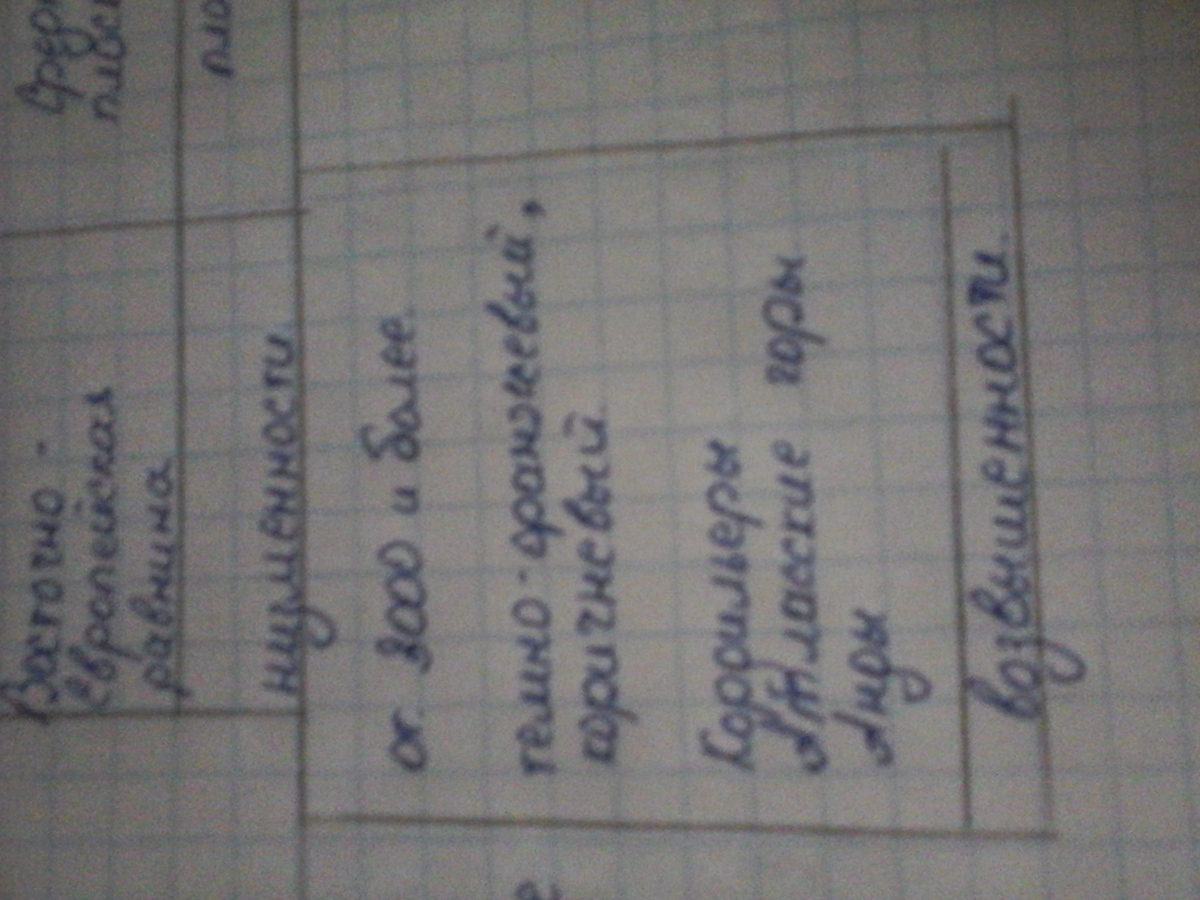 Восточно -
европейская
равнина
низменности
от 3000 и более
темно-оранжевый,
коричневый
Кордильеры
Атласские горы
Анды
возвышенности